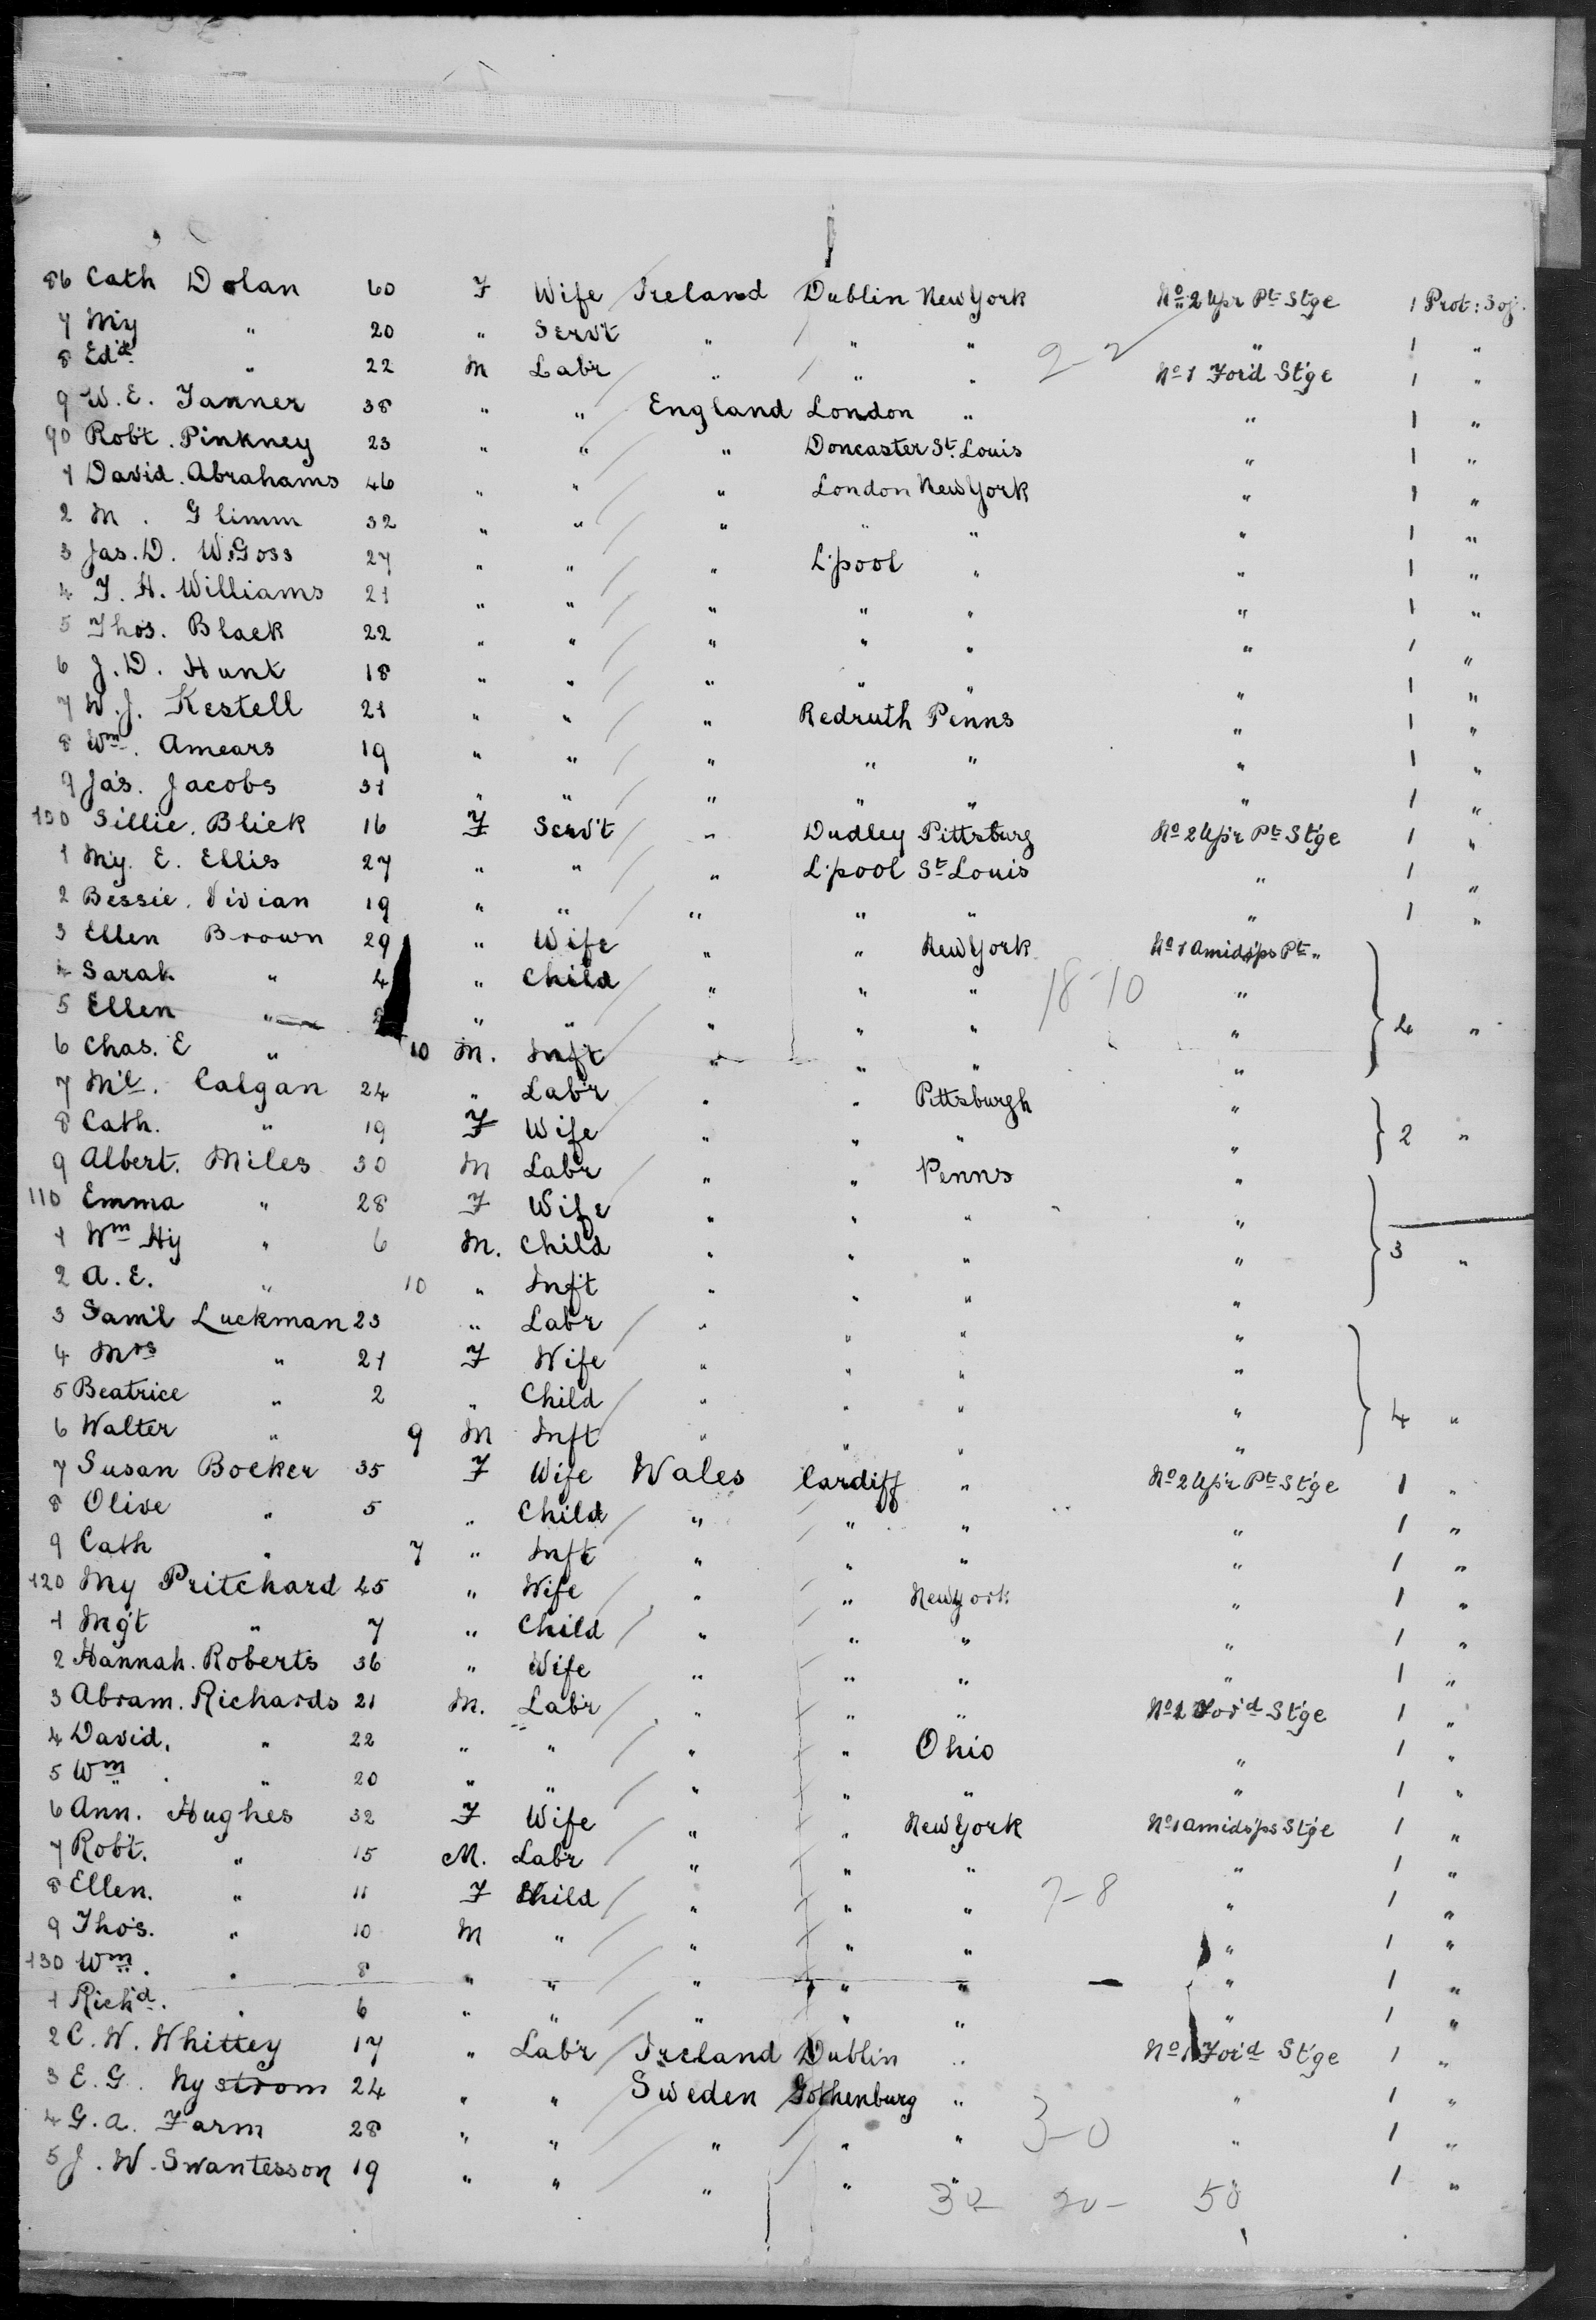 86 Cath Dolan 60 F Wife Ireland Dublin New York No 2 Up'r Pt Stge 1 Prot: Soj.
7 My " 20 " Serv't " " " " 1 "
8 Edd " 22 M Lab'r " " " No 1 For'd St'ge 1 "
9 W. E. Tanner 38 " " England London " " 1 "
90 Rob't. Pinkney 23 " " " Doncaster St. Louis " 1 "
1 David. Abrahams 46 " " " London New York " 1 "
2 M. Glimm 32 " " " " " " 1 "
3 Jas. D. W. Goss 27 " " " L'pool " " 1 "
4 T. H. Williams 21 " " " " " " 1 "
5 Thos. Black 22 " " " " " " 1 "
6 J. D. Hunt 18 " " " " " " 1 "
7 W. J. Kestell 21 " " " Redruth Penns " 1 "
8 Wm. Amears 19 " " " " " " 1 "
9 Ja's. Jacobs 31 " " " " " " 1 "
100 Sillie. Blick 16 F Serv't " Dudley Pittsburg No 2 Up'r Pt St'ge 1 "
1 My. E. Ellis 27 " " " L'pool St Louis " 1 "
2 Bessie. Vivian 19 " " " " " " 1 "
3 Ellen Brown 29 " Wife " " New York No 1 Amids'ps Pt "
4 Sarah " 4 " Child " " " 18-10 "
5 Ellen " " " " " " " 4 "
6 Chas. E " 10 M. Inf't " " " "
7 M'l. Calgan 24 " Lab'r " " Pittsburgh "
8 Cath. " 19 F Wife " " " " 2 "
9 Albert. Miles 30 M Lab'r " " Penns "
110 Emma " 28 F Wife " " " "
1 Wm Hy " 6 M. Child " " " " 3 "
2 A. E. " 10 " Inf't " " " "
3 Sam'l Luckman 23 " Lab'r " " " "
4 Mrs " 21 F Wife " " " "
5 Beatrice " 2 " Child " " " " 4 "
6 Walter " 9 M Inft " " " "
7 Susan Bocker 35 F Wife Wales Cardiff " No 2 Up'r Pt St'ge 1 "
8 Olive " 5 " Child " " " " 1 "
9 Cath " 7 " Inft " " " " 1 "
120 My Pritchard 45 " Wife " " New York " 1 "
1 Mg't " 7 " Child " " " " 1 "
2 Hannah. Roberts 36 " Wife " " " " 1 "
3 Abram. Richards 21 M. Lab'r " " " No 1 For'd St'ge 1 "
4 David. " 22 " " " " Ohio " 1 "
5 Wm. " 20 " " " " " " 1 "
6 Ann. Hughes 32 F Wife " " New York No 1 Amids'ps St'ge 1 "
7 Rob't. " 15 M. Lab'r " " " " 1 "
8 Ellen. " 11 F Child " " " 7-8 " 1 "
9 Tho's. " 10 M " " " " " 1 "
130 Wm. " 8 " " " " " " 1 "
1 Rich'd. " 6 " " " " " " 1 "
2 C. W. Whittey 17 " Lab'r Ireland Dublin " No 1 For'd St'ge 1 "
3 E. G. Nystrom 24 " " Sweden Gothenburg " " 1 "
4 G. A. Farm 28 " " " " " 3-0 " 1 "
5 J. W. Swantesson 19 " " " " " " 1 "
30- 20- 50